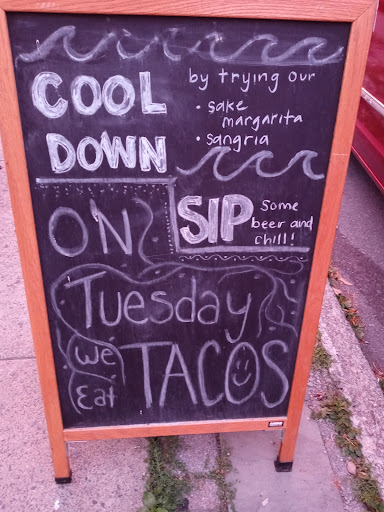 COOL DOWN
by trying our
• sake margarita
• sangria
SIP
Some beer and chill!
ON
Tuesday
we Eat
TACOS